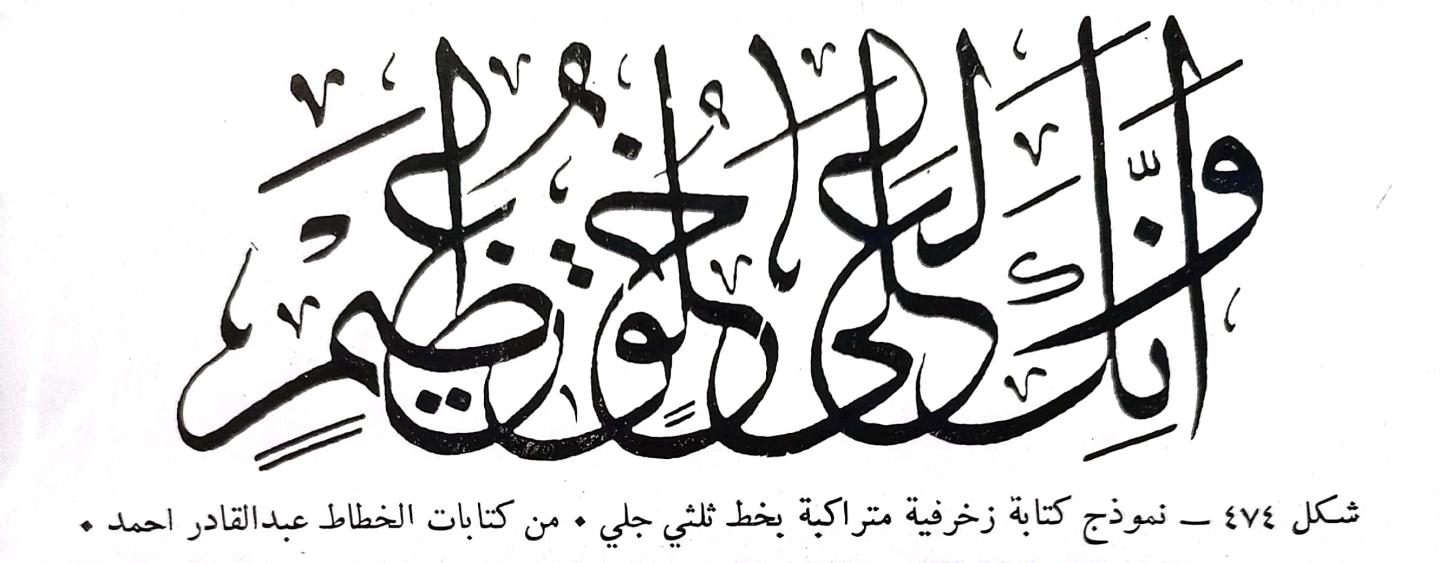 وَإِنَّكَ لَعَلَىٰ خُلُقٍ عَظِيمٍ
شكل ٤٧٤ — نموذج كتابة زخرفية متراكبة بخط ثلثي جلي • من كتابات الخطاط عبدالقادر احمد •